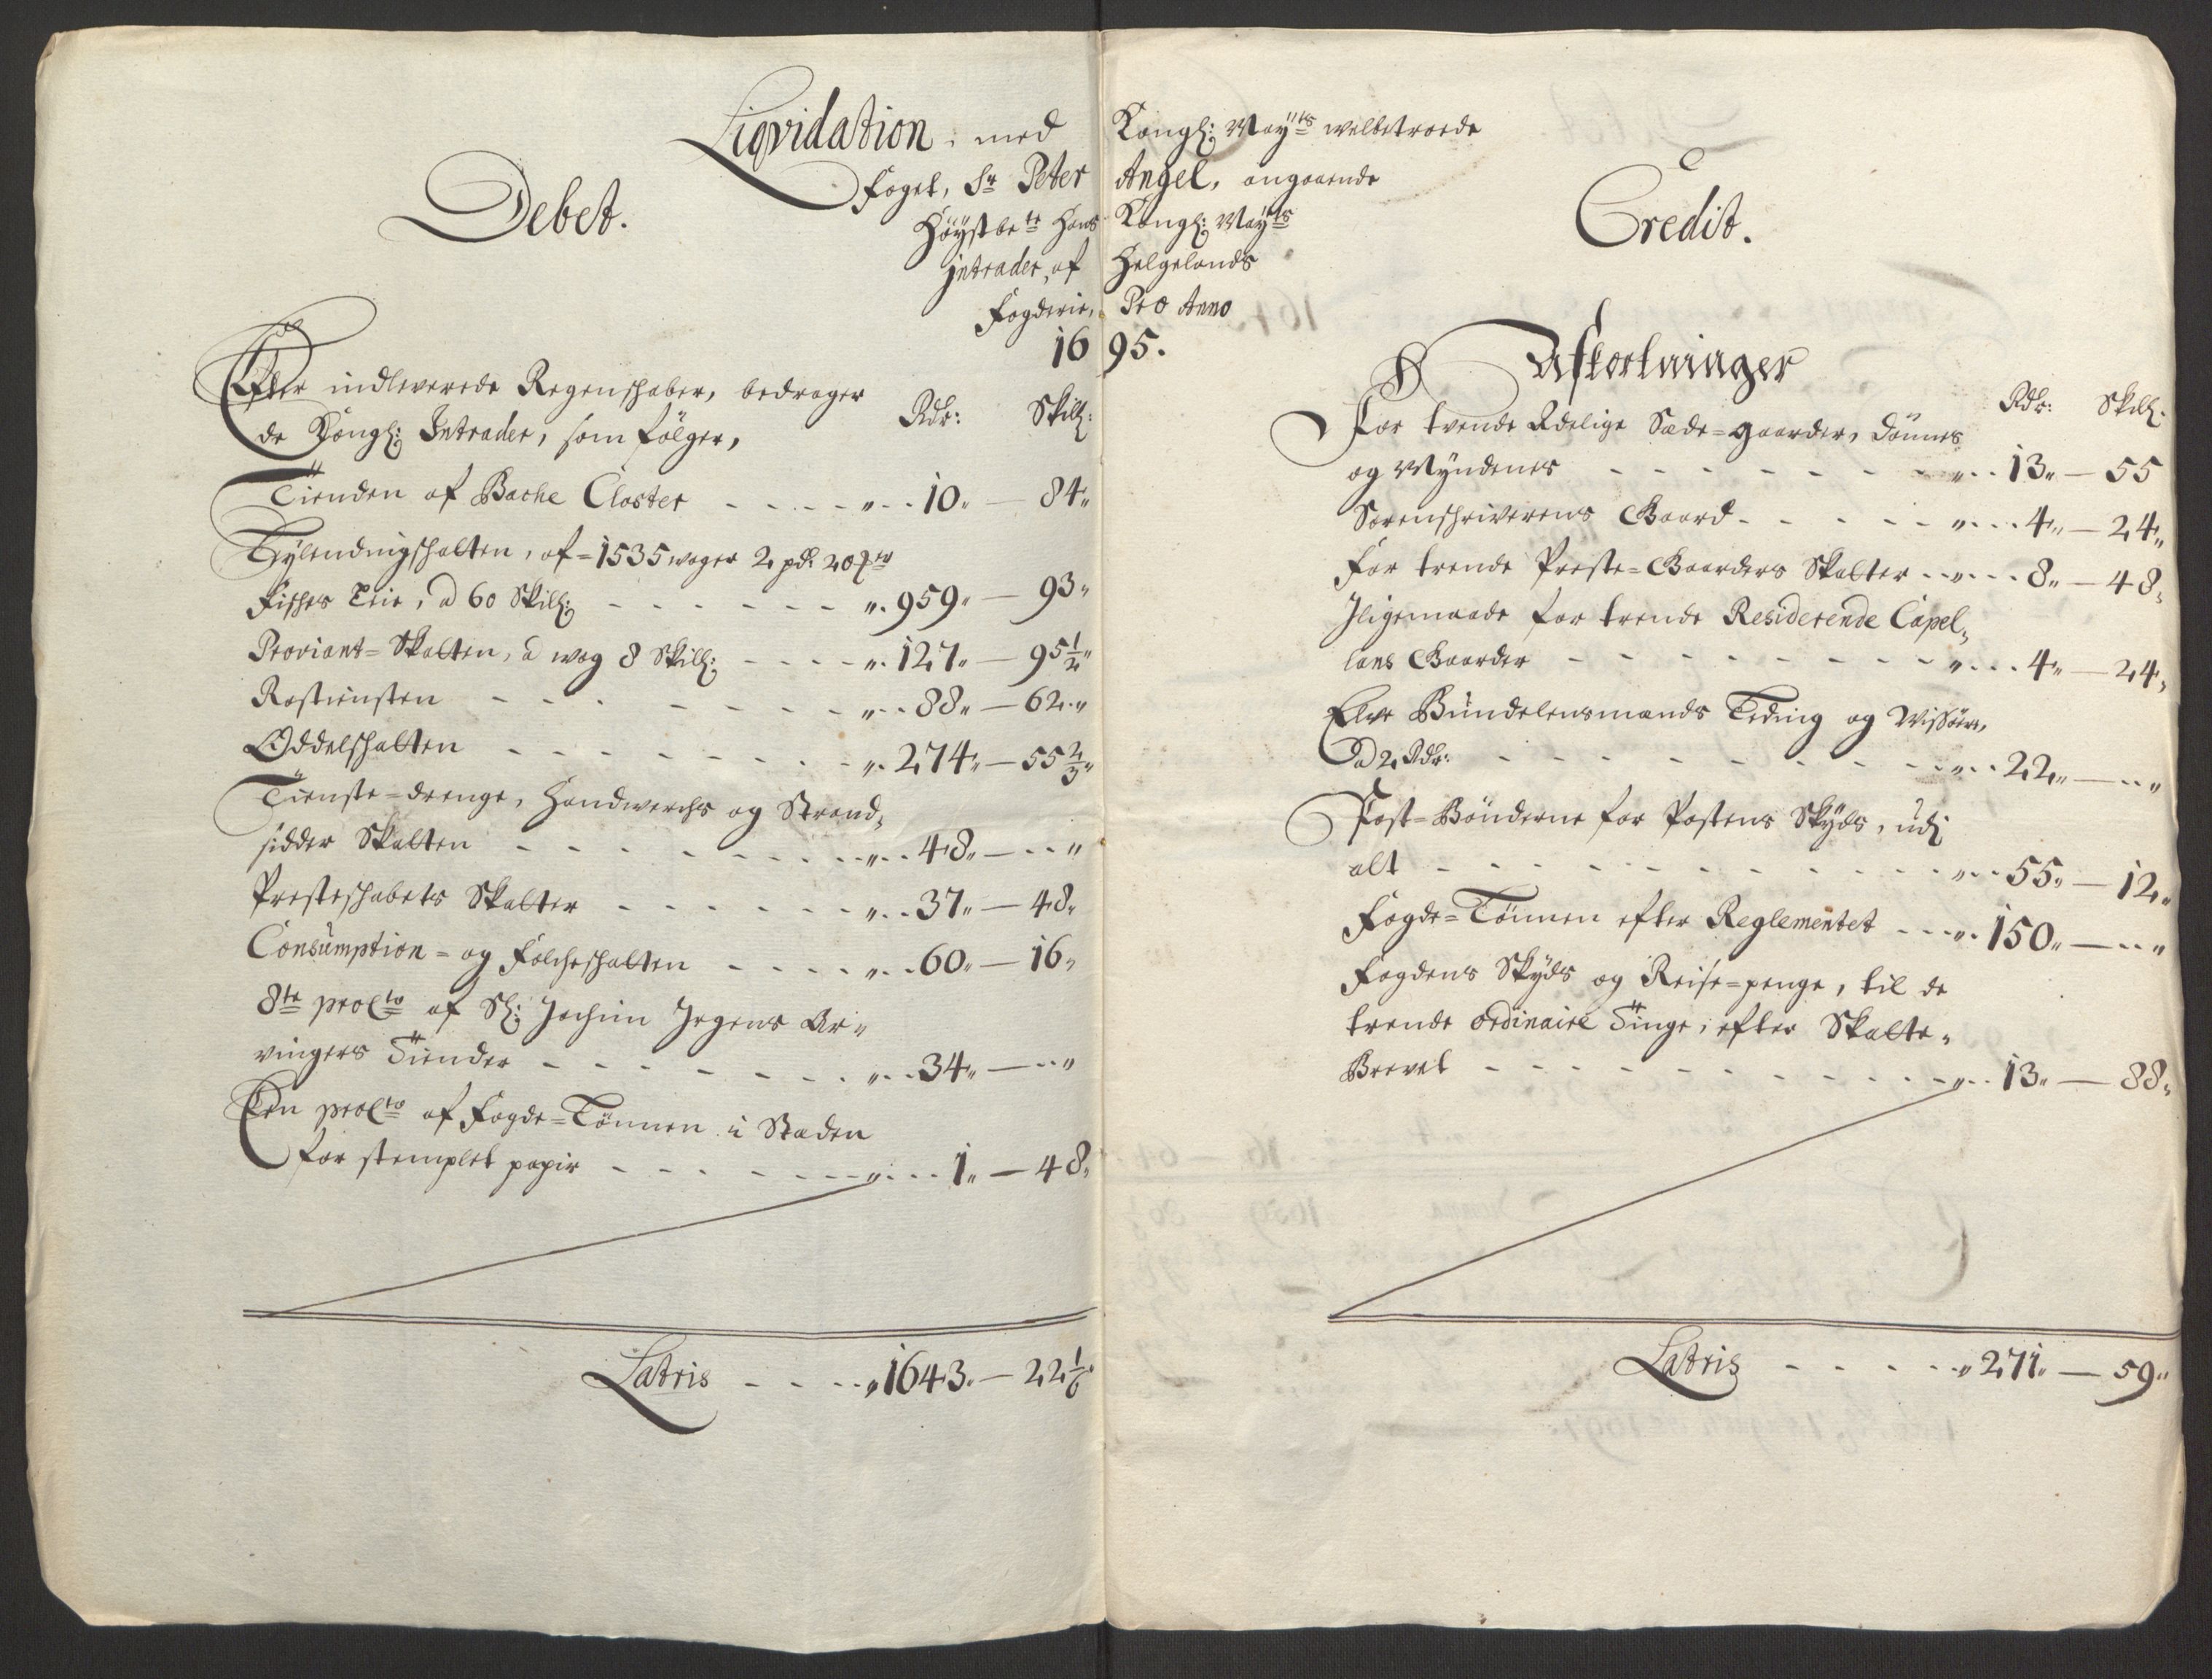 Liqvidation, med Kongl: May:ts welbetroede
Foget, Sr Peter Angel, angaaende
Höÿstbe:te Hans Kongl: Maÿ:ts
jntrader, af Helgelands
Fogderie, Pro Anno
1695.
Debet.
Efter indleverede Regenschaber, bedrager
de Kongl: Intrader, som fölger,
Rdr: Skill:
Tienden af Bache Closter - - - - „ - - 10„ — 84„
Leÿlendingschatten, af = 1535 woger 2 pd: 20
Fisches Leie, a 60 Skill: - - - - - - „ - 959„ — 93„
Proviant-Skatten, a wog 8 Skill: - - - - „ - 127„ — 95½„
Rostienisten - - - - - - - - „ - - 88„ — 62„
Oddelschatten - - - - - - - - „ - 274„ — 55⅔„
Tieniste-drenge, Handwerchs og Strand„
sidder Skatten - - - - - - - - „ - - 48„ — - - „
Presteschabets Skatter - - - - - - „ - - 37„ — 48„
Consumption- og Folcheschatten - - - - „ - - 60„ — 16„
8te prol:to af Sl: Jochim Jrgens Ar„
vingers Tiender - - - - - - - „ - - 34„ — - - „
Een prol:to af Fogde-Tönnen i Staden
for stemplet papir - - - - - - - „ - - - 1„ — 48„
Latris - - - - „ 1643„ — 22⅙„
Credit.
Afkortninger
Rdr: Skill:
For tvende Adelige Sæde-gaarder, Dönnes
og Mÿndenes - - - - - - - - „ - - 13„ — 55
Sorenschriverens Gaard - - - - - „ - - - 4„ — 24„
For trende Preste-Gaarders Skatter - - „ - - - 8„ — 48„
Jligemaade for trende Residerende Capel„
lans Gaarder - - - - - - - - - „ - - - 4„ — 24„
Elve Bündelensmands Leding og Wissöre,
a 2 Rdr: - - - - - - - - - „ - - 22„ — - - „
Post-Bönderne for Postens Skÿds, udj
alt - - - - - - - - - - - „ - - 55„ — 12„
Fogde-Tönnen efter Reglementet - - - „ - 150„ — - - „
Fogdens Skÿds og Reise-penge, til de
trende ordinaire Tinge, efter Skatte„
Brevet - - - - - - - - - - - „ - - 13„ — 88„
Latris - - - - - - „ 271„ — 59„